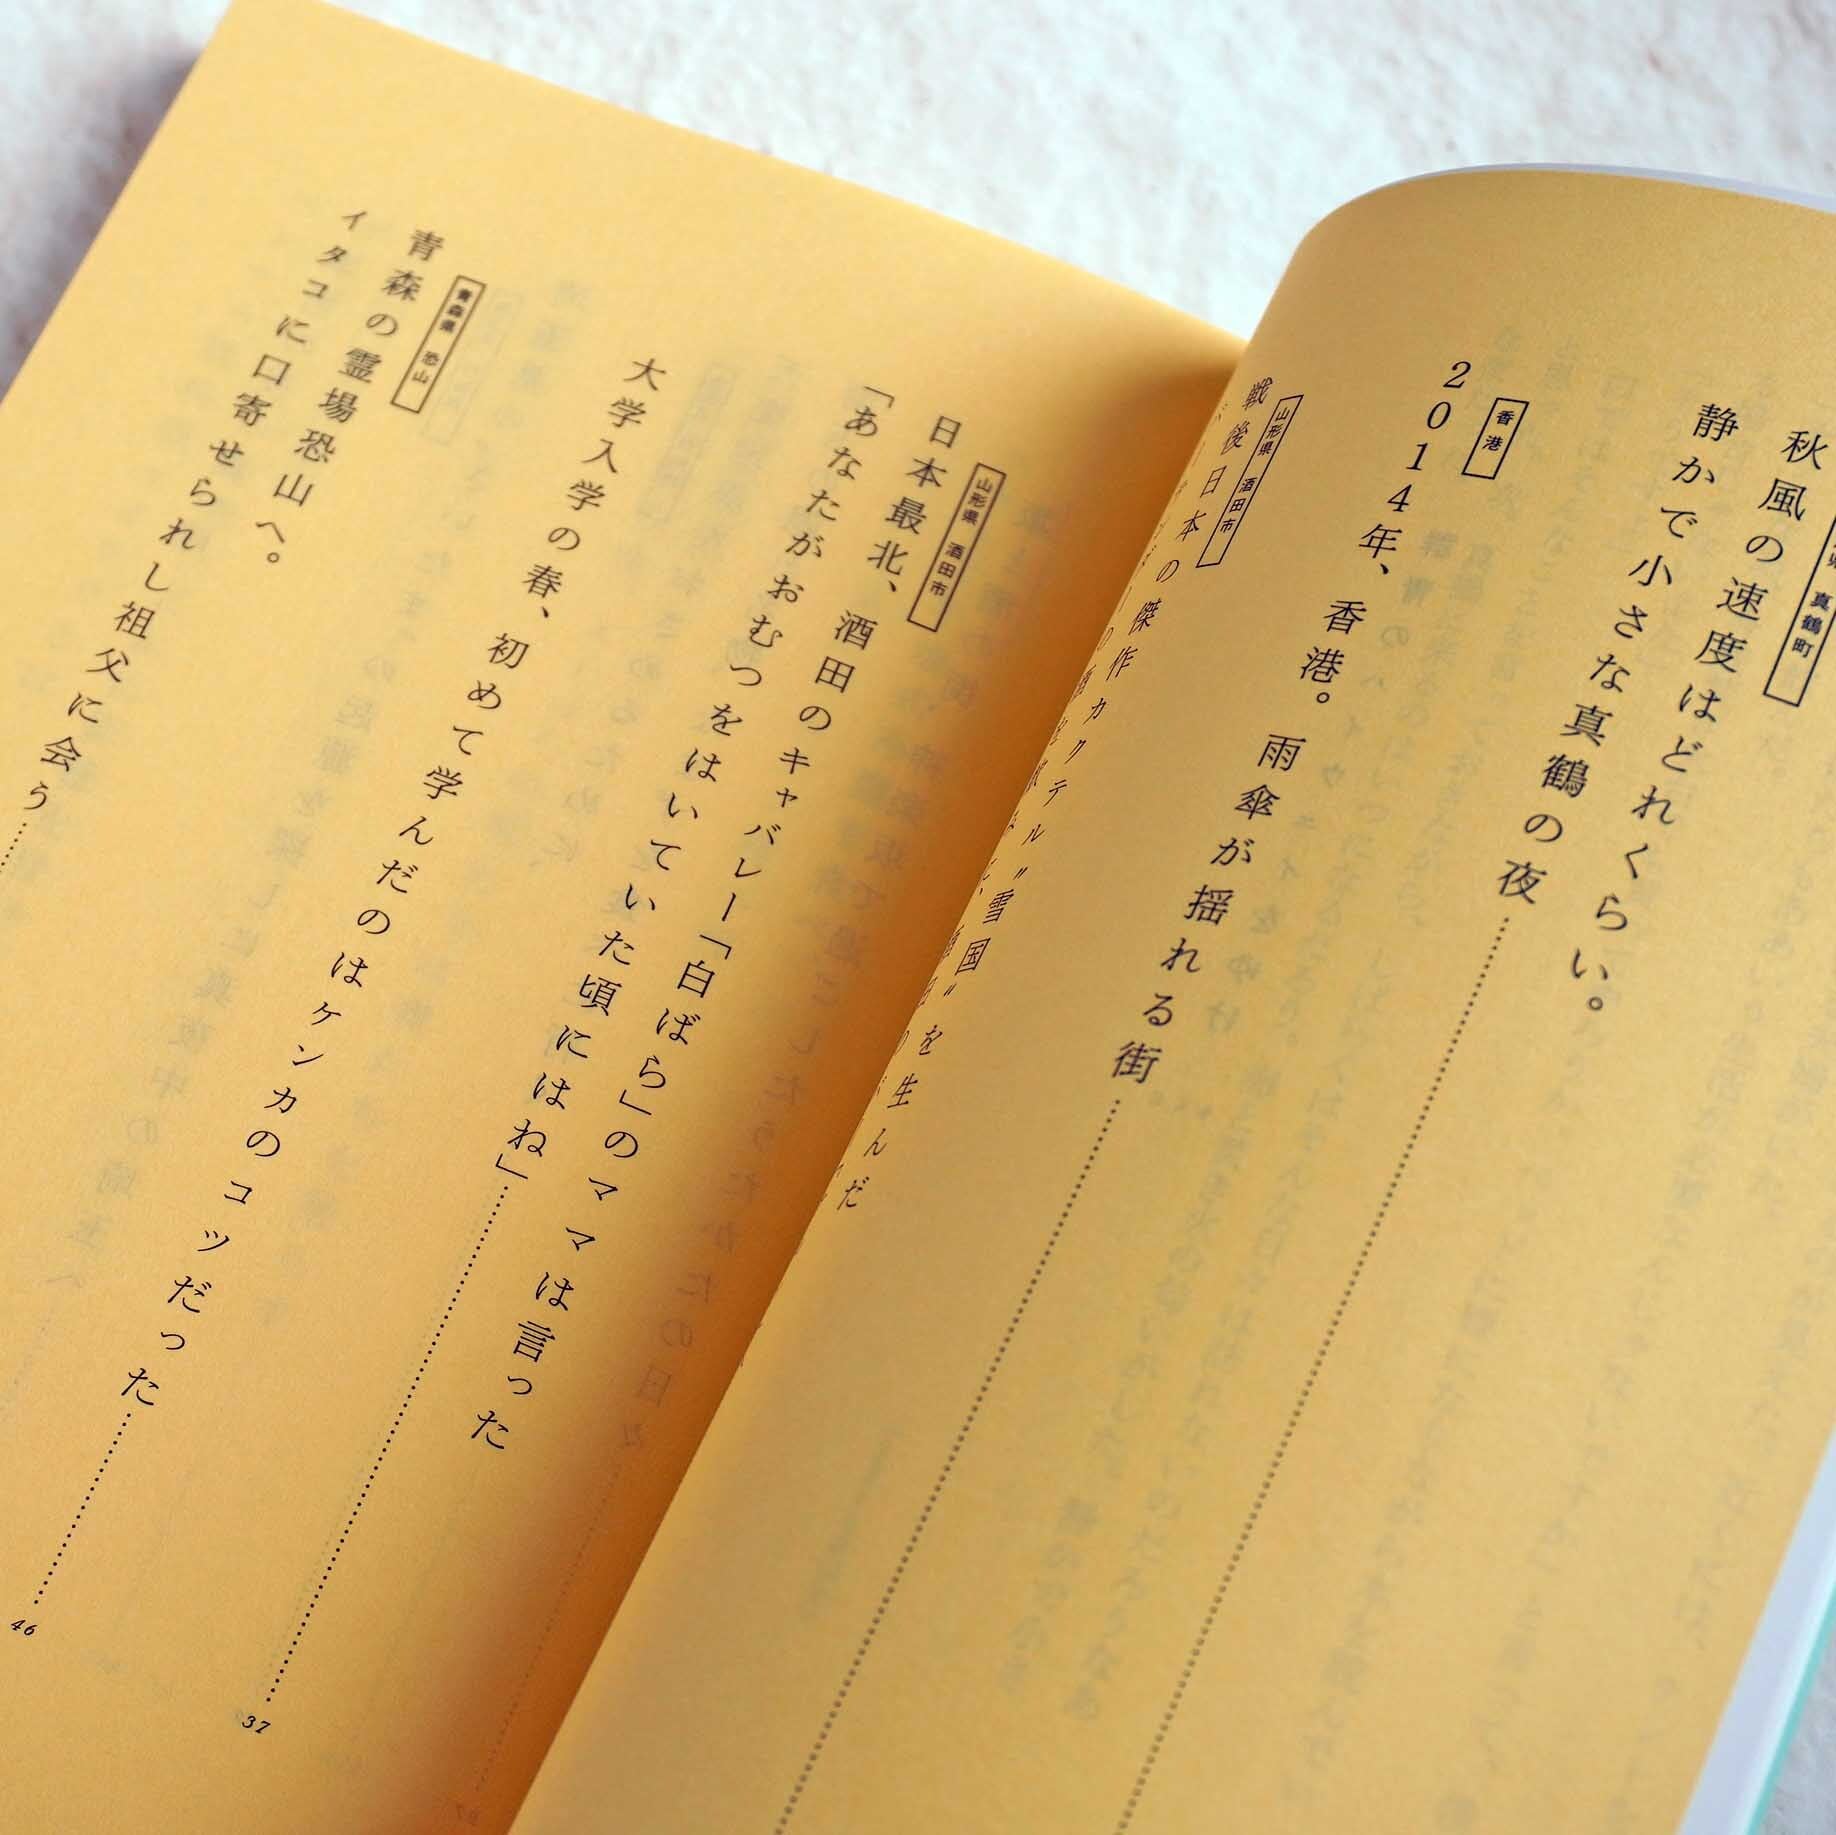 真鶴町
秋風の速度はどれくらい。
静かで小さな真鶴の夜
香港
2014年、香港。雨傘が揺れる街
山形県 酒田市
戦後日本の傑作カクテル〝雪国〟を生んだ
山形県 酒田市
日本最北、酒田のキャバレー「白ばら」のママは言った
「あなたがおむつをはいていた頃にはね」……37
大学入学の春、初めて学んだのはケンカのコツだった……46
青森県 恐山
青森の霊場恐山へ。
イタコに口寄せられし祖父に会う……